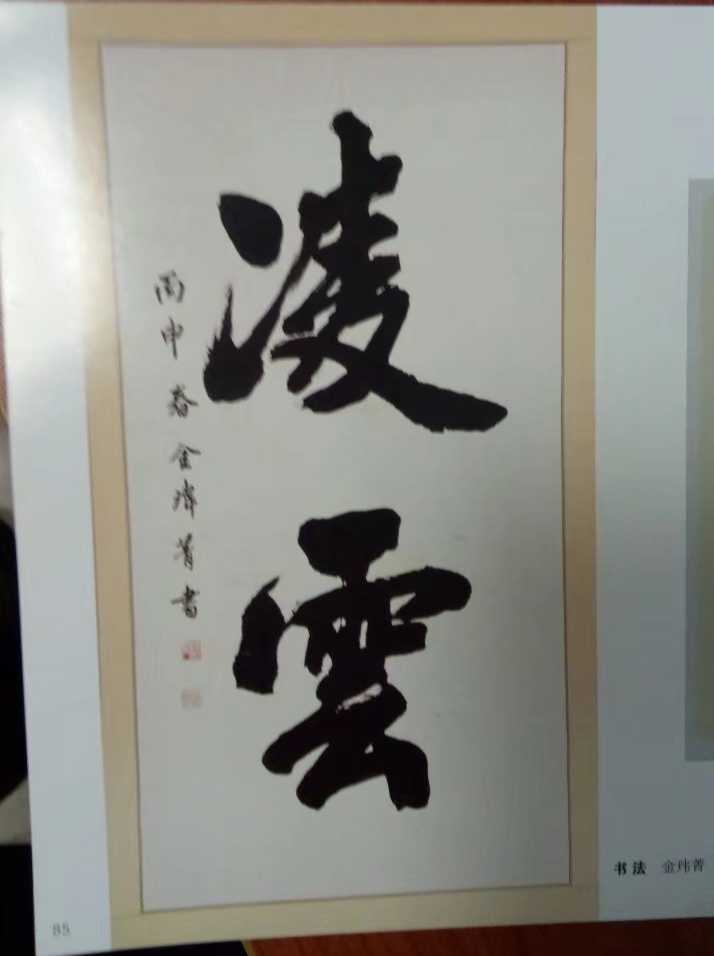 凌雲
丙申春金瑋菁書
书法 金玮菁
85